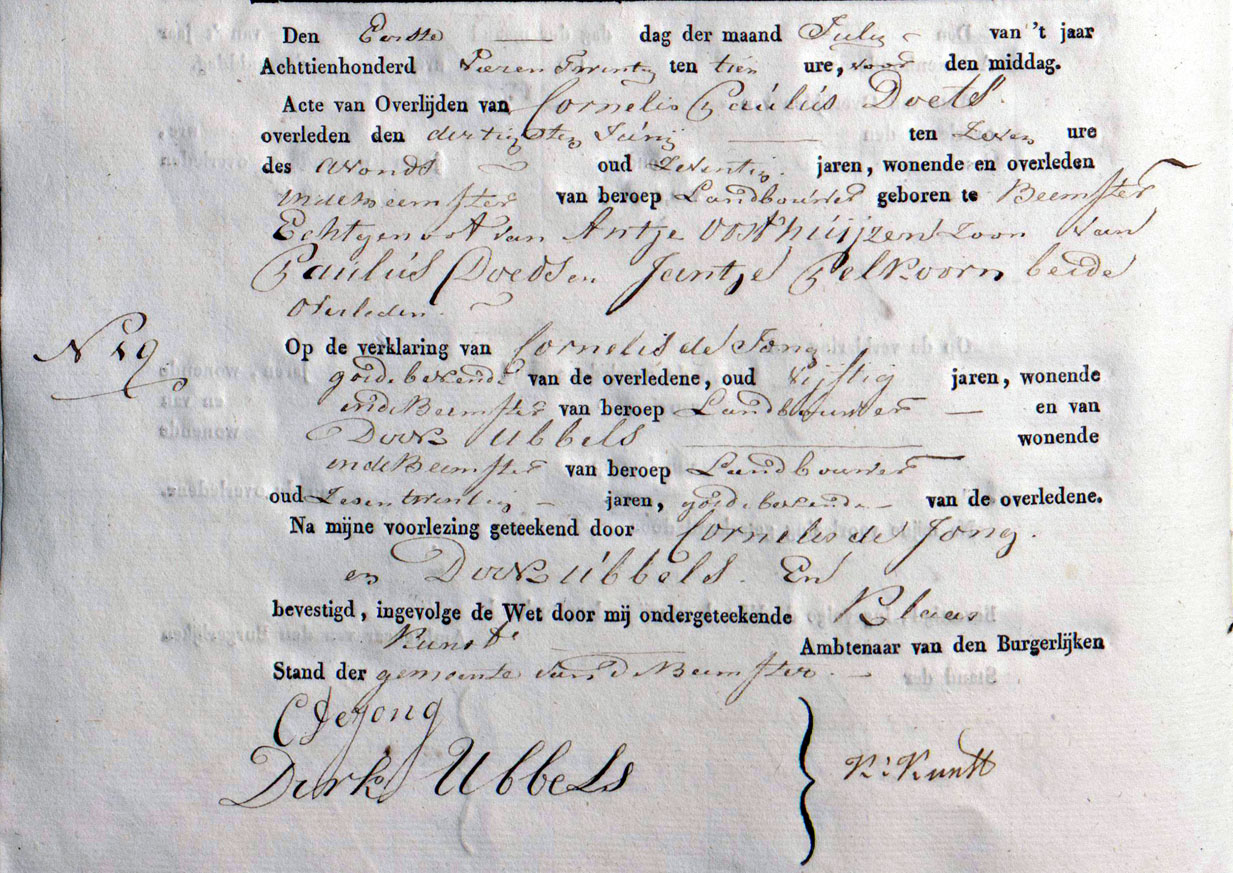 Den Eerste dag der maand July van 't jaar
Achttienhonderd Vier en Twintig ten tien ure, voor den middag.
Acte van Overlijden van Cornelis Paulus Doets.
overleden den dertigsten Junij ten Zeven ure
des avonds oud Zeventig jaren, wonende en overleden
in de Beemster van beroep Landbouwer geboren te Beemster
Echtgenoot van Antje Oosthuijzen Zoon van
Paulus Doeds en Jantje Pelkoorn beide
Overleden.
N 29
Op de verklaring van Cornelis de Jong
goede bekende van de overledene, oud Vijftig jaren, wonende
in de Beemster van beroep Landbouwer en van
Dirk Ubbels wonende
in de Beemster van beroep Landbouwer
oud Zesentwintig jaren, goede bekende van de overledene.
Na mijne voorlezing geteekend door Cornelis de Jong.
en Dirk Ubbels. En
bevestigd, ingevolge de Wet door mij ondergeteekende Klaas
Kunst Ambtenaar van den Burgerlijken
Stand der gemeente van d Beemster.
C de Jong
Dirk Ubbels
Ks Kunst